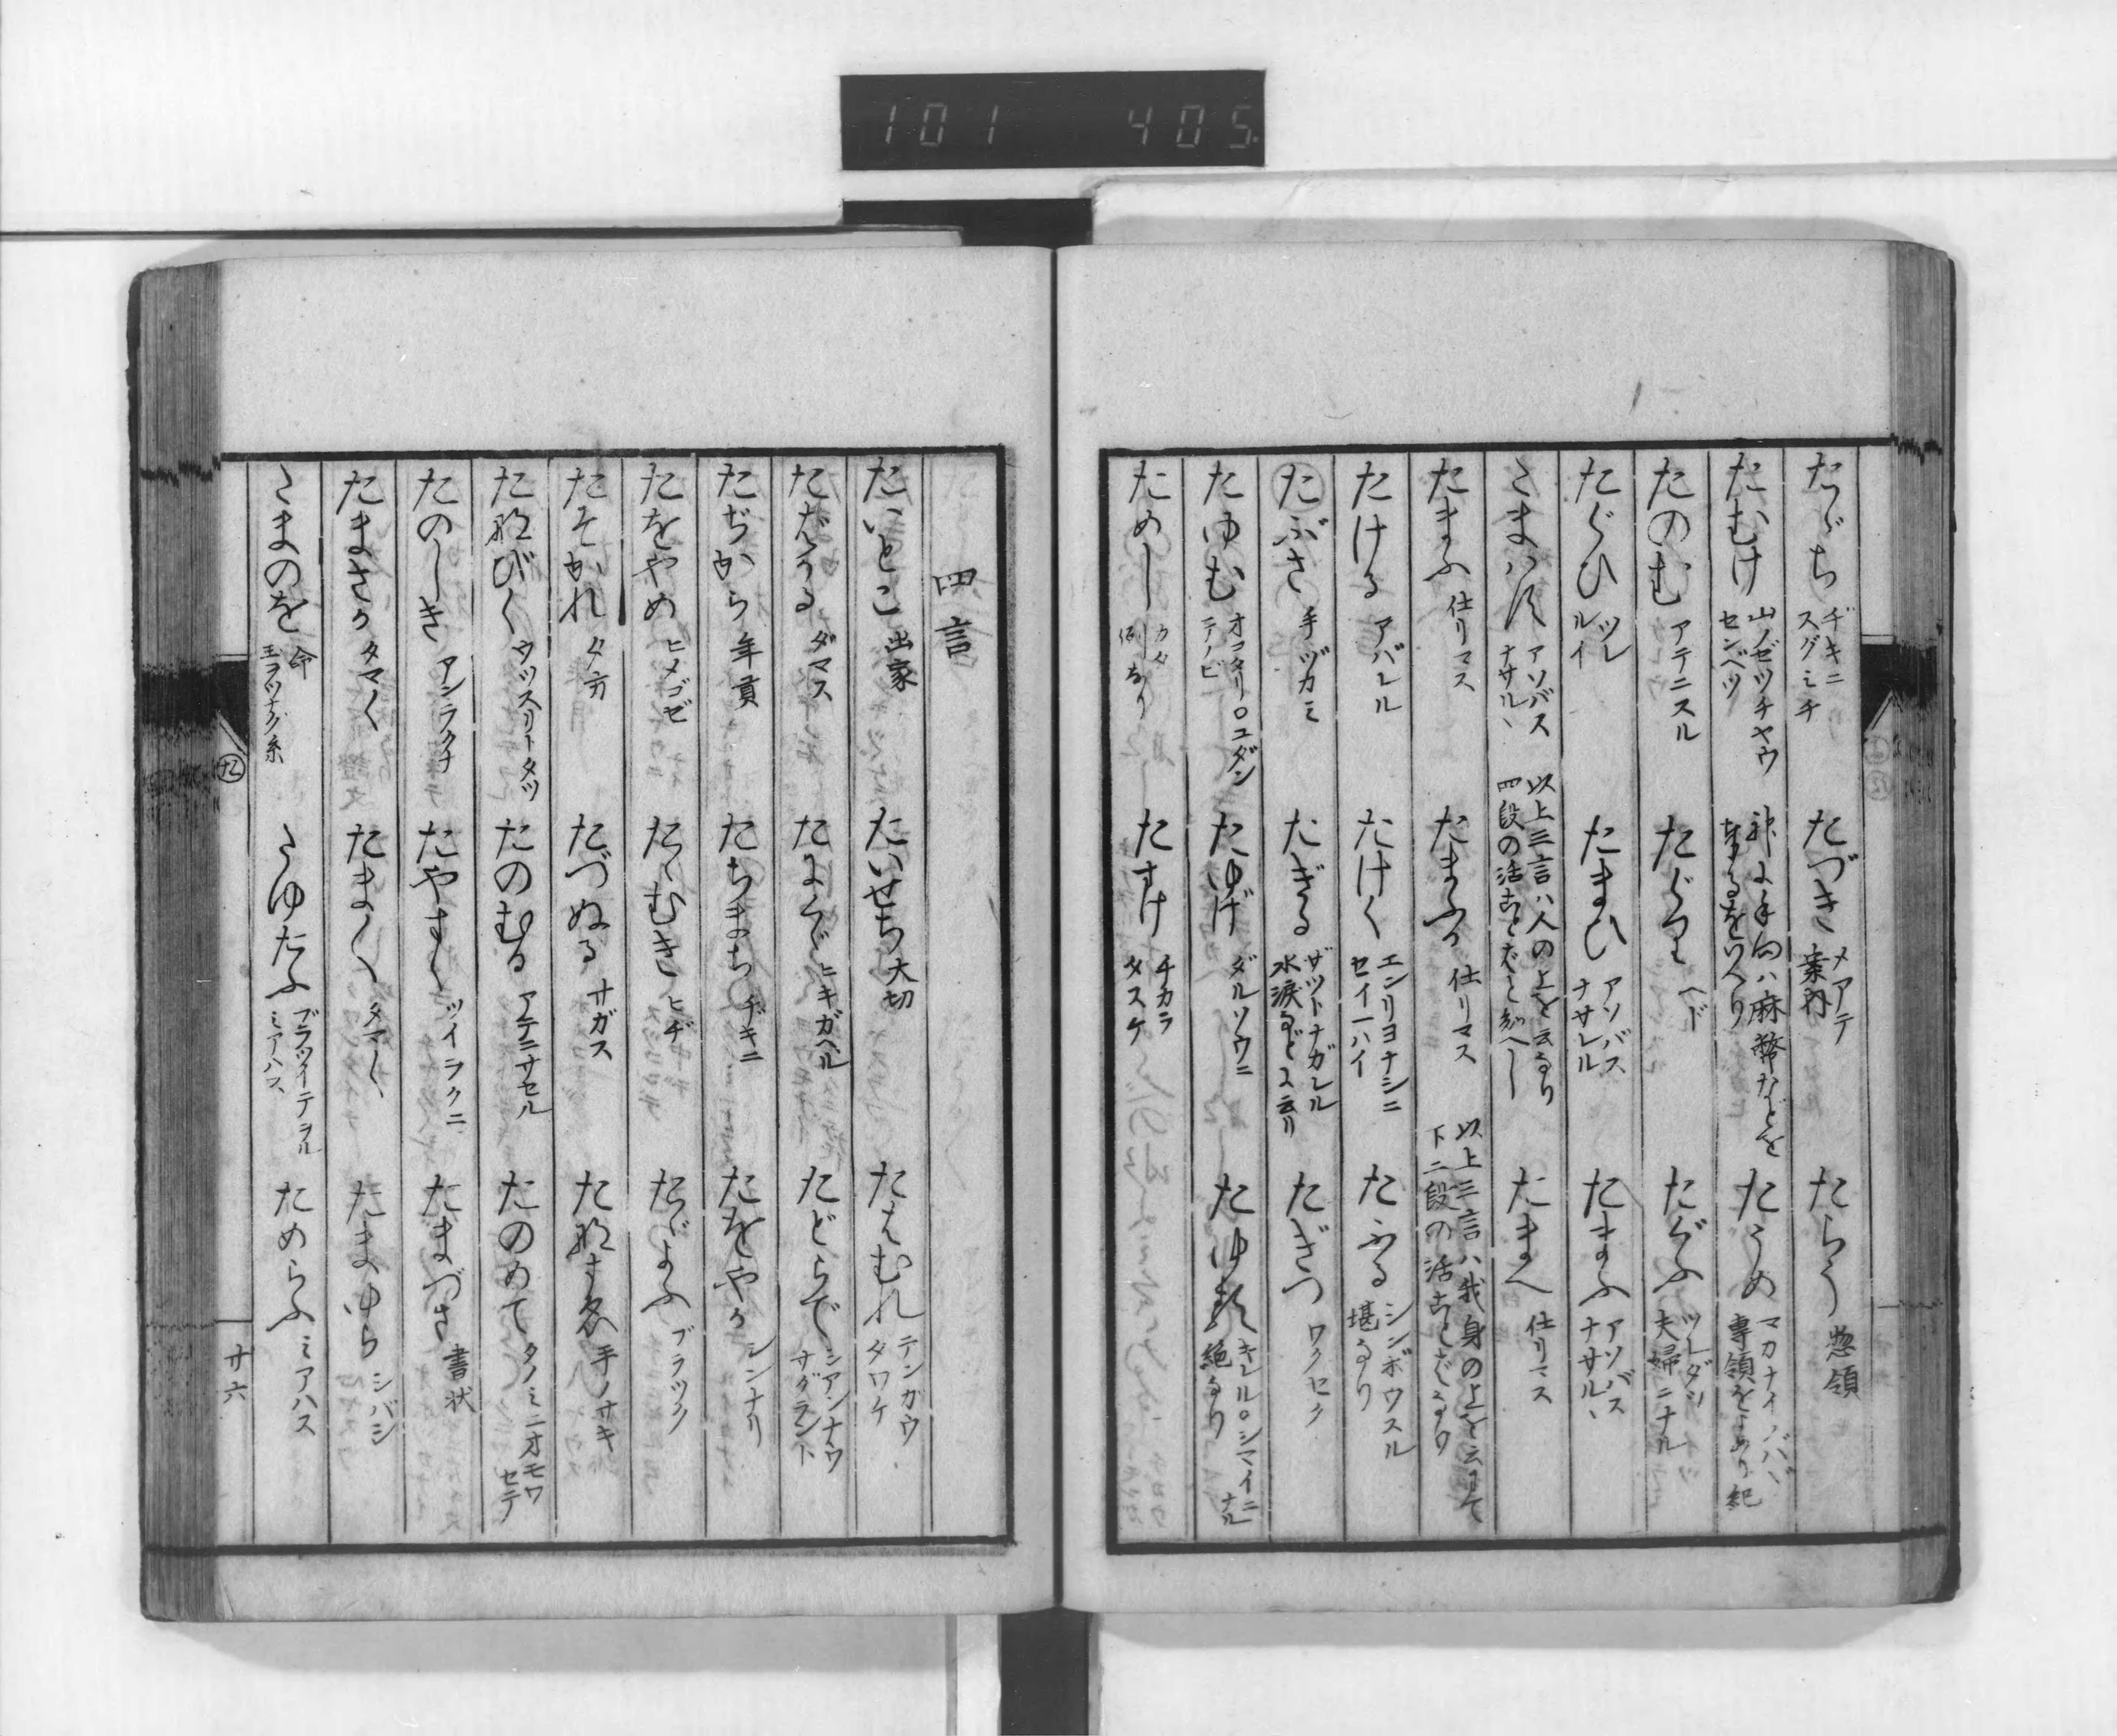 101 405
たゞち ヂキニ スグミチ たづき メアテ 案内 たらう 惣領
たむけ 山ノゼツチヤウ センベツ 神に手向ハ麻幣などを奉るをいへり たうめ マカナイババヽ 専領を
たのむ アテニスル たぐり ヘド たぐふ ツレダツ 夫婦ニナル
たぐひ ツレ ルイ たまひ アソバス ナサレル たまふ アソバス ナサルヽ
たまはす アソバス ナサルヽ 以上三言ハ人の上を云なり 四段の活ことばと知へし たまへ 仕リマス
たまふ 仕リマス たまふる 仕リマス 以上三言ハ我身の上を云事にて 下二段の活ことばなり
たける アバレル たけく エンリヨナシニ セイ一ハイ たふる シンボウスル 堪るなり
たぶさ 手ヅカミ たぎる ザツトナガレル 水涙などに云り たぎつ ワクセク
たゆむ オコタリ○ユダン たゆげ ダルソウニ たゆる キレル○シマイニナル 絶るなり
ためし カタ 例なり たすけ チカラ タスケ
四言
たいとこ 出家 たいせち 大切 たはむれ テンガウ タワケ
たばかる ダマス たまくら ヒキガヘル たどらで シアンナウ サグラント
たぢから 年貢 たちまち ヂキニ たをやか シンナリ
たをやめ ヒメゴゼ たゞむき ヒヂ たゞよふ ブラツク
たそかれ 夕方 たづぬる サガス たなすゑ 手ノサキ
たなびく ウツスリトタツ たのむる アテニサセル たのめて タノミニオモワセテ
たのしき アンラクナ たやすく ツイラクニ たまづさ 書状
たまさか タマ〱 たま〱 タマ〱 たまゆら シバシ
たまのを 命 玉ヲツナグ糸 たゆたふ ブラツイテヲル ミアハス ためらふ ミアハス
た
廿六